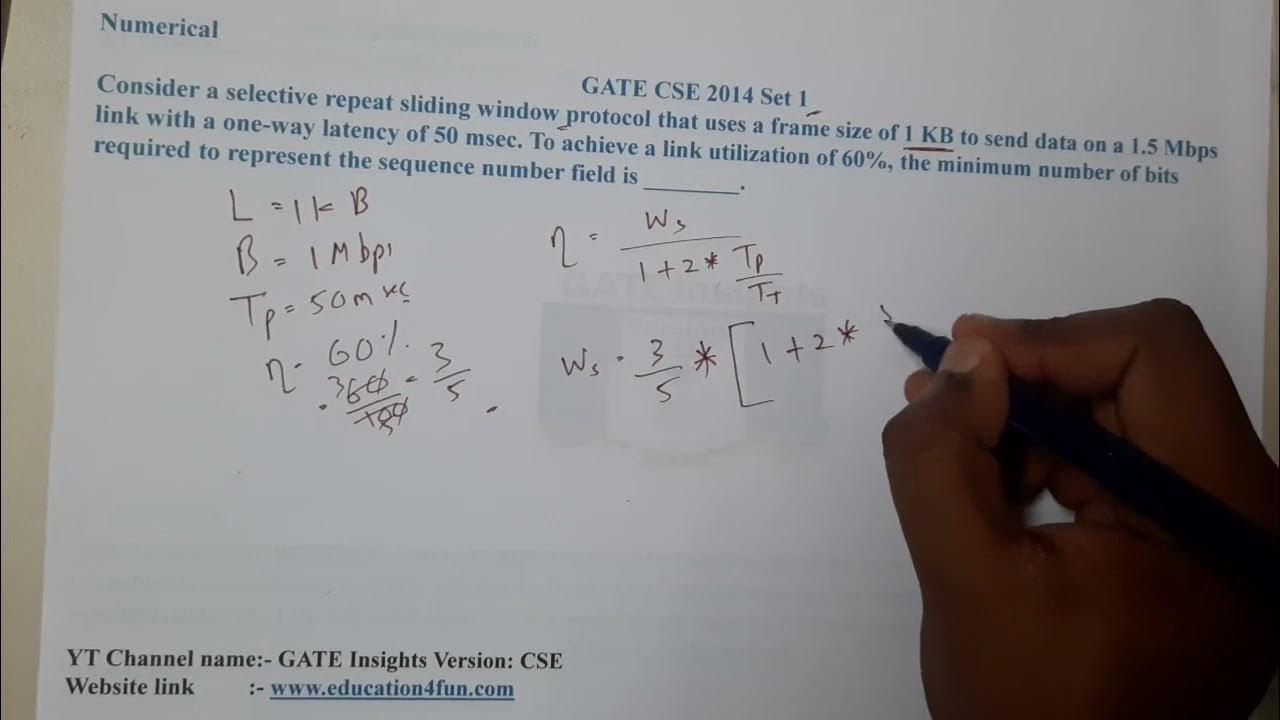 Numerical
GATE CSE 2014 Set 1
Consider a selective repeat sliding window protocol that uses a frame size of 1 KB to send data on a 1.5 Mbps
link with a one-way latency of 50 msec. To achieve a link utilization of 60%, the minimum number of bits
required to represent the sequence number field is ________.
L = 1 k B
B = 1 M bps
Tp = 50 m sec
η = 60 %
360/100 = 3/5
η = Ws / 1 + 2 * Tp/Tt
Ws = 3/5 * [ 1 + 2 *
YT Channel name:- GATE Insights Version: CSE
Website link :- www.education4fun.com